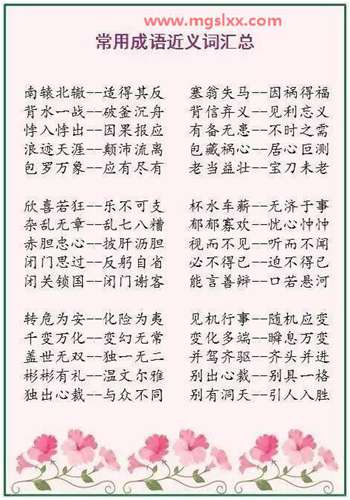 www.mgslxx.com
常用成语近义词汇总
南辕北辙--适得其反 塞翁失马--因祸得福
背水一战--破釜沉舟 背信弃义--见利忘义
悖入悖出--因果报应 有备无患--不时之需
浪迹天涯--颠沛流离 包藏祸心--居心叵测
包罗万象--应有尽有 老当益壮--宝刀未老
欣喜若狂--乐不可支 杯水车薪--无济于事
杂乱无章--乱七八糟 郁郁寡欢--忧心忡忡
赤胆忠心--披肝沥胆 视而不见--听而不闻
闭门思过--反躬自省 必不得已--迫不得已
闭关锁国--闭门谢客 能言善辩--口若悬河
转危为安--化险为夷 见机行事--随机应变
千变万化--变幻无常 变化多端--瞬息万变
盖世无双--独一无二 并驾齐驱--齐头并进
彬彬有礼--温文尔雅 别出心裁--别具一格
独出心裁--与众不同 别有洞天--引人入胜